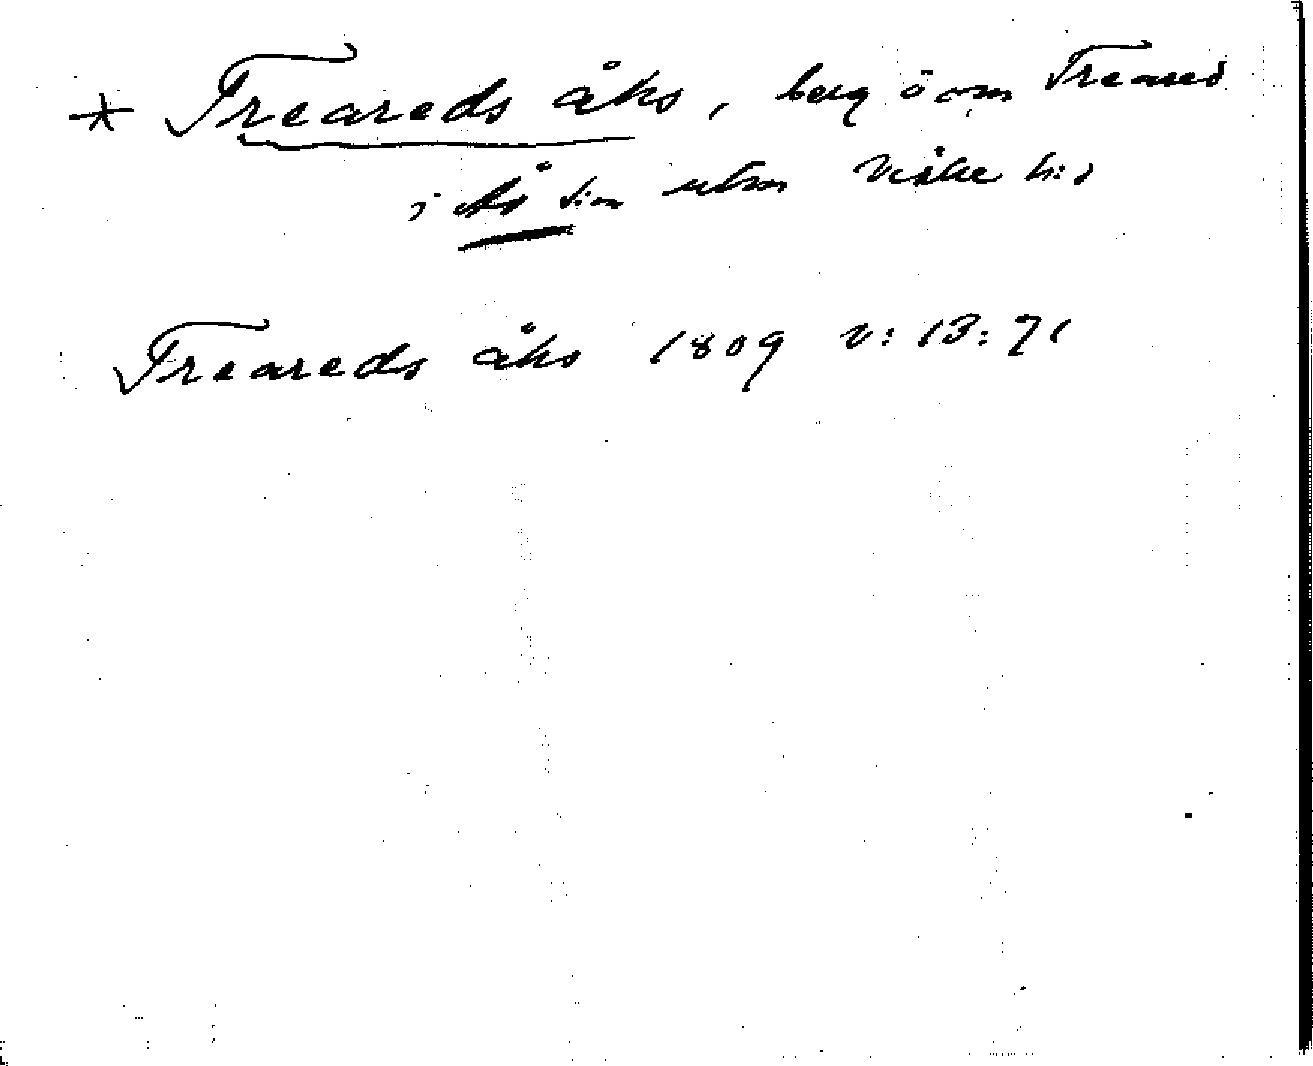 * Treareds åks, berg ö om Treared
i Ås s:n Viske h:d
Treareds åks 1809 v: 13: 71